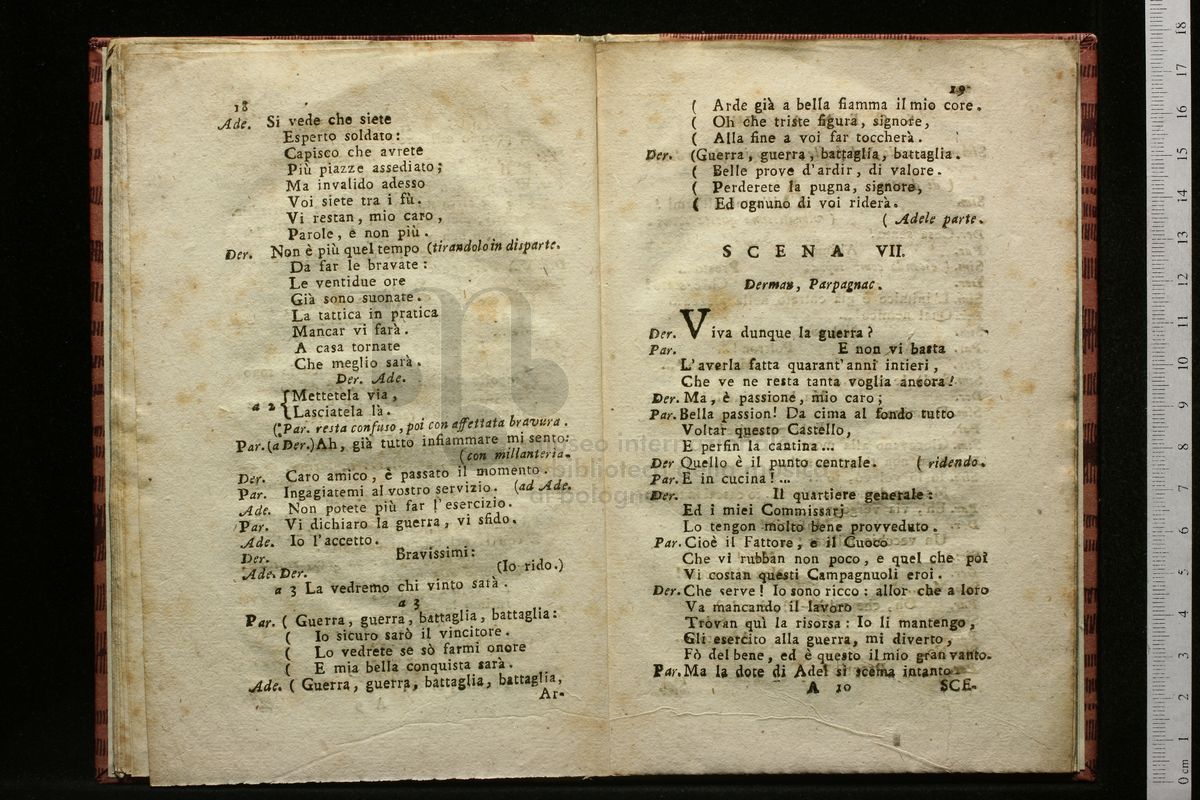 18
Ade. Si vede che siete
Esperto soldato:
Capisco che avrete
Più piazze assediato;
Ma invalido adesso
Voi siete tra i fù.
Vi restan, mio caro,
Parole, e non più.
Der. Non è più quel tempo (tirandolo in disparte.
Da far le bravate:
Le ventidue ore
Già sono suonate.
La tattica in pratica
Mancar vi farà.
A casa tornate
Che meglio sarà.
Der. Ade.
a 2 { Mettetela via,
Lasciatela là.
(Par. resta confuso, poi con affettata bravura.
Par. (a Der.) Ah, già tutto infiammare mi sento:
(con millanteria.
Der. Caro amico, è passato il momento.
Par. Ingagiatemi al vostro servizio. (ad Ade.
Ade. Non potete più far l'esercizio.
Par. Vi dichiaro la guerra, vi sfido.
Ade. Io l'accetto.
Der. Bravissimi:
Ade. Der. (Io rido.)
a 3 La vedremo chi vinto sarà.
a 3
Par. ( Guerra, guerra, battaglia, battaglia:
( Io sicuro sarò il vincitore.
( Lo vedrete se sò farmi onore
( E mia bella conquista sarà.
Ade. ( Guerra, guerra, battaglia, battaglia,
Ar-
19
( Arde già a bella fiamma il mio core.
( Oh che triste figura, signore,
( Alla fine a voi far toccherà.
Der. (Guerra, guerra, battaglia, battaglia.
( Belle prove d'ardir, di valore.
( Perderete la pugna, signore,
( Ed ognuno di voi riderà.
( Adele parte.
SCENA VII.
Derman, Parpagnac.
Der. Viva dunque la guerra?
Par. E non vi basta
L'averla fatta quarant'anni intieri,
Che ve ne resta tanta voglia ancora!
Der. Ma, è passione, mio caro;
Par. Bella passion! Da cima al fondo tutto
Voltar questo Castello,
E perfin la cantina...
Der Quello è il punto centrale. ( ridendo.
Par. E in cucina!...
Der. Il quartiere generale:
Ed i miei Commissarj
Lo tengon molto bene provveduto.
Par. Cioè il Fattore, e il Cuoco
Che vi rubban non poco, e quel che poi
Vi costan questi Campagnuoli eroi.
Der. Che serve! Io sono ricco: allor che a loro
Va mancando il lavoro
Trovan quì la risorsa: Io li mantengo,
Gli esercito alla guerra, mi diverto,
Fò del bene, ed è questo il mio gran vanto.
Par. Ma la dote di Adel si scema intanto
A 10 SCE-